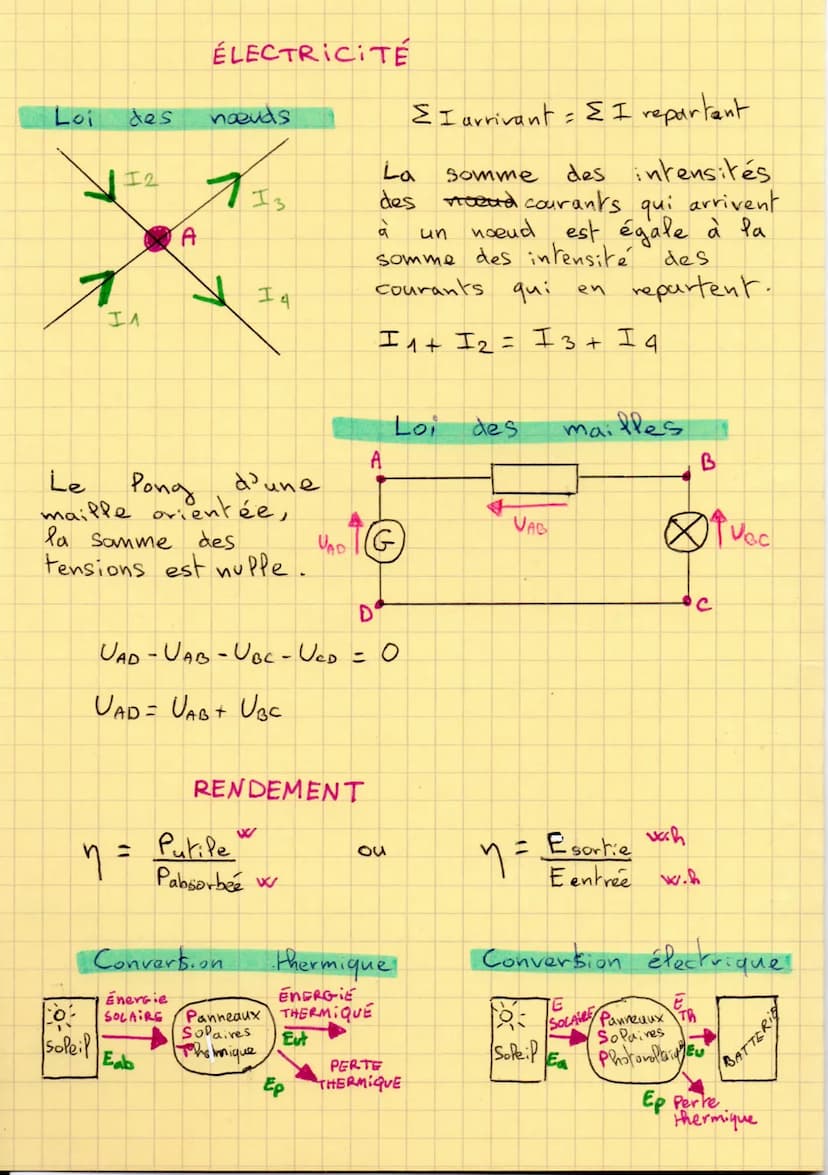 ÉLECTRICITÉ
Loi des nœuds
Σ I arrivant = Σ I repartant
I2
I3
A
I1
I4
La somme des intensités
des nœud courants qui arrivent
à un nœud est égale à la
somme des intensité des
courants qui en repartent.
I1 + I2 = I3 + I4
Loi des mailles
Le long d'une
maille orientée,
la somme des
tensions est nulle.
A
B
UAB
UAD
G
UBC
D
C
UAD - UAB - UBC - UCD = 0
UAD = UAB + UBC
RENDEMENT
η = Putile W
Pabsorbée W
ou
η = E sortie W.h
E entrée W.h
Conversion thermique
Soleil
Énergie
SOLAIRE
Eab
Panneaux
Solaires
Thermique
ÉNERGIE
THERMIQUE
Eut
PERTE
THERMIQUE
Ep
Conversion électrique
Soleil
E
SOLAIRE
Ea
Panneaux
Solaires
É
TH
Eu
BATTERIE
Ep
Perte
thermique